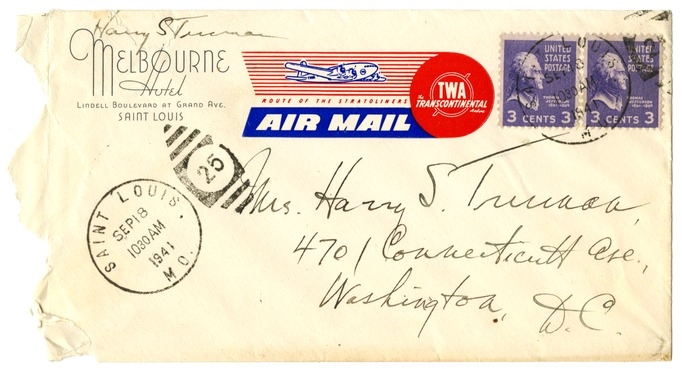 Harry S Truman
MELBOURNE
Hotel
LINDELL BOULEVARD AT GRAND AVE.
SAINT LOUIS
ROUTE OF THE STRATOLINERS
AIR MAIL
The
TWA
TRANSCONTINENTAL
Airline
UNITED
STATES
POSTAGE
3 CENTS 3
UNITED
STATES
POSTAGE
3 CENTS 3
SAINT LOUIS,
SEP 18
1030 AM
1941
MO.
25
SAINT LOUIS,
SEP 18
1030 AM
1941
MO.
Mrs. Harry S. Truman,
4701 Connecticutt Ave.,
Washington,
D.C.